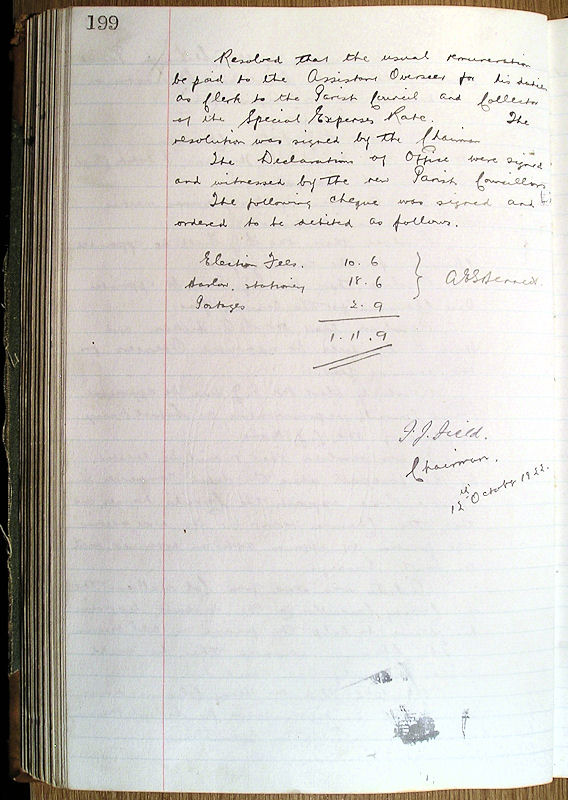 199
Resolved that the usual remuneration
be paid to the Assistant Overseer for his duties
as Clerk to the Parish Council and Collector
of the Special Expenses Rate. The
resolution was signed by the Chairman
The Declarations of Office were signed
and witnessed by the new Parish Councillors
The following cheque was signed and
ordered to be debited as follows.
Election Fees. 10. 6
stationery 18. 6
Postages 2. 9
1. 11. 9
F.J. Field.
Chairman.
12th October 1922.